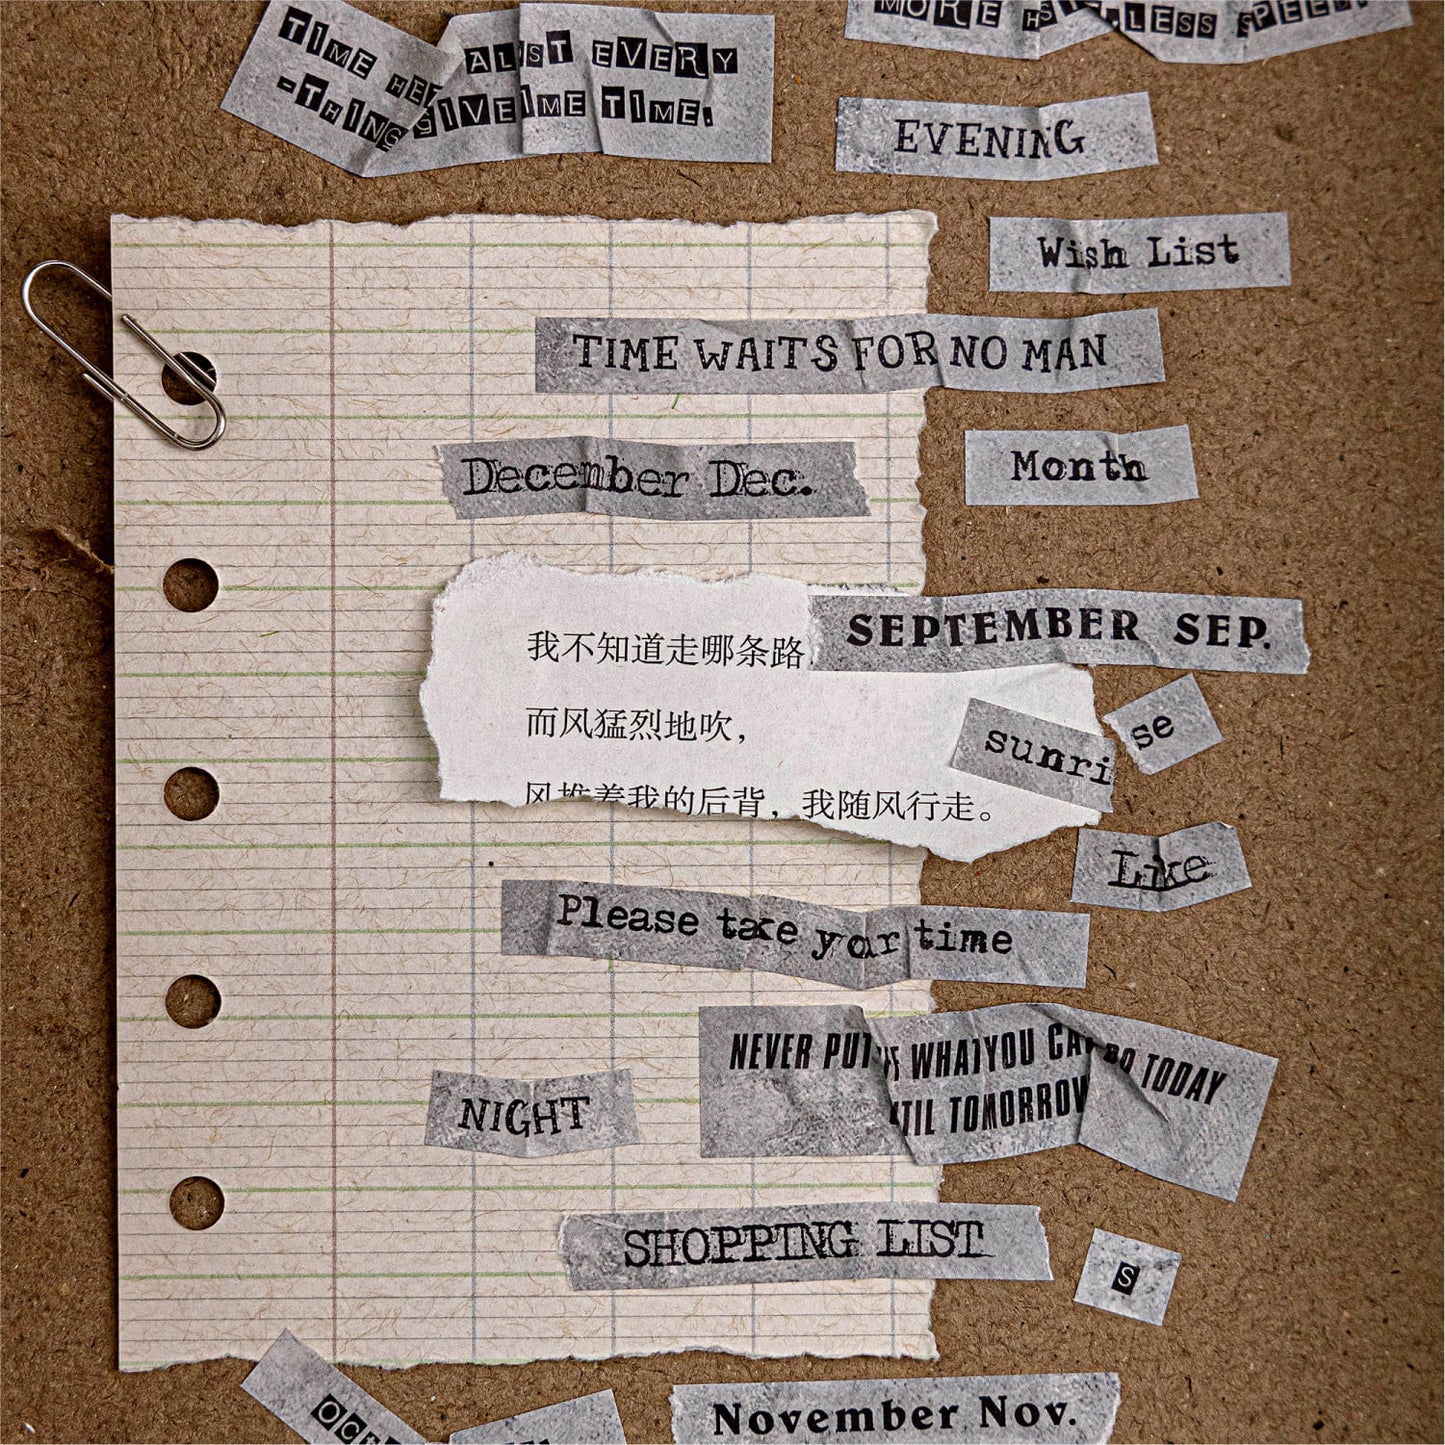 TIME HE ALST EVERY
-THING GIVE IME TIME.
MORE H LESS SPEED.
EVENING
Wish List
TIME WAITS FOR NO MAN
December Dec.
Month
我不知道走哪条路
SEPTEMBER SEP.
而风猛烈地吹，
sunri
se
风推着我的后背，我随风行走。
Like
Please take your time
NEVER PUT WHAT YOU CA DO TODAY
TIL TOMORROW
NIGHT
SHOPPING LIST
S
OCT
November Nov.